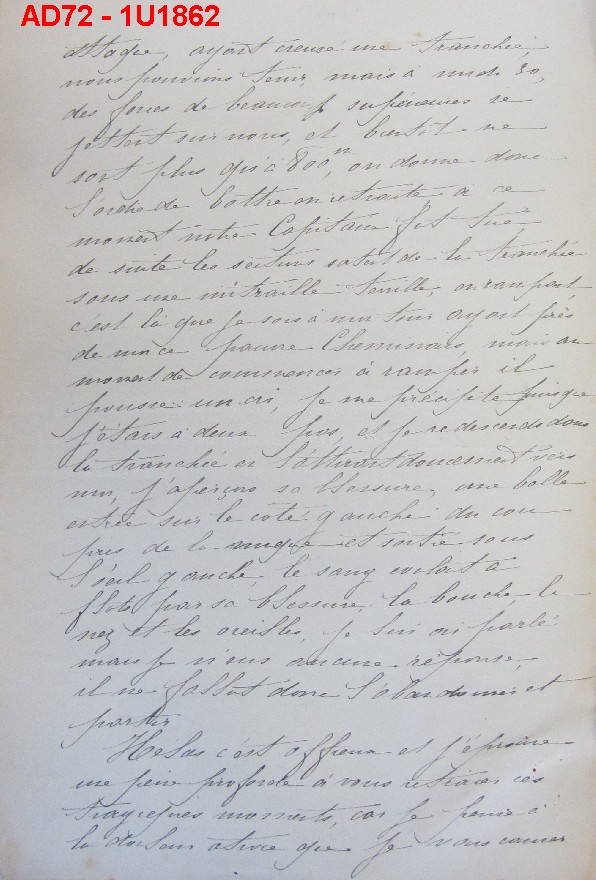 AD72 - 1U1862
attaque, ayant creusé une tranchée,
nous pouvions tenir, mais à midi 30,
des forces de beaucoup supérieures se
jettent sur nous, et bientôt ne
sont plus qu'à 800 m, on donne donc
l'ordre de battre en retraite à ce
moment notre Capitaine fut tué
de suite les sections sortent de la tranchée
sous une mitraille terrible, en rampant
c'est là que je sors à mon tour ayant près
de moi ce pauvre Cheminais, mais au
moment de commencer à ramper il
pousse un cri, je me précipite puisque
j'étais à deux pas, et je redescends dans
la tranchée en l'attirant doucement vers
moi, j'aperçois sa blessure, une balle
entrée sur le côté gauche du cou
près de la nuque et sortie sous
l'œil gauche, le sang coulait à
flots par sa blessure, la bouche, le
nez et les oreilles, je lui ai parlé
mais je n'eus aucune réponse,
il me fallut donc l'abandonner et
partir
Hélas c'est affreux et j'éprouve
une peine profonde à vous retracer ces
tragiques moments, car je pense à
la douleur que je vous causer